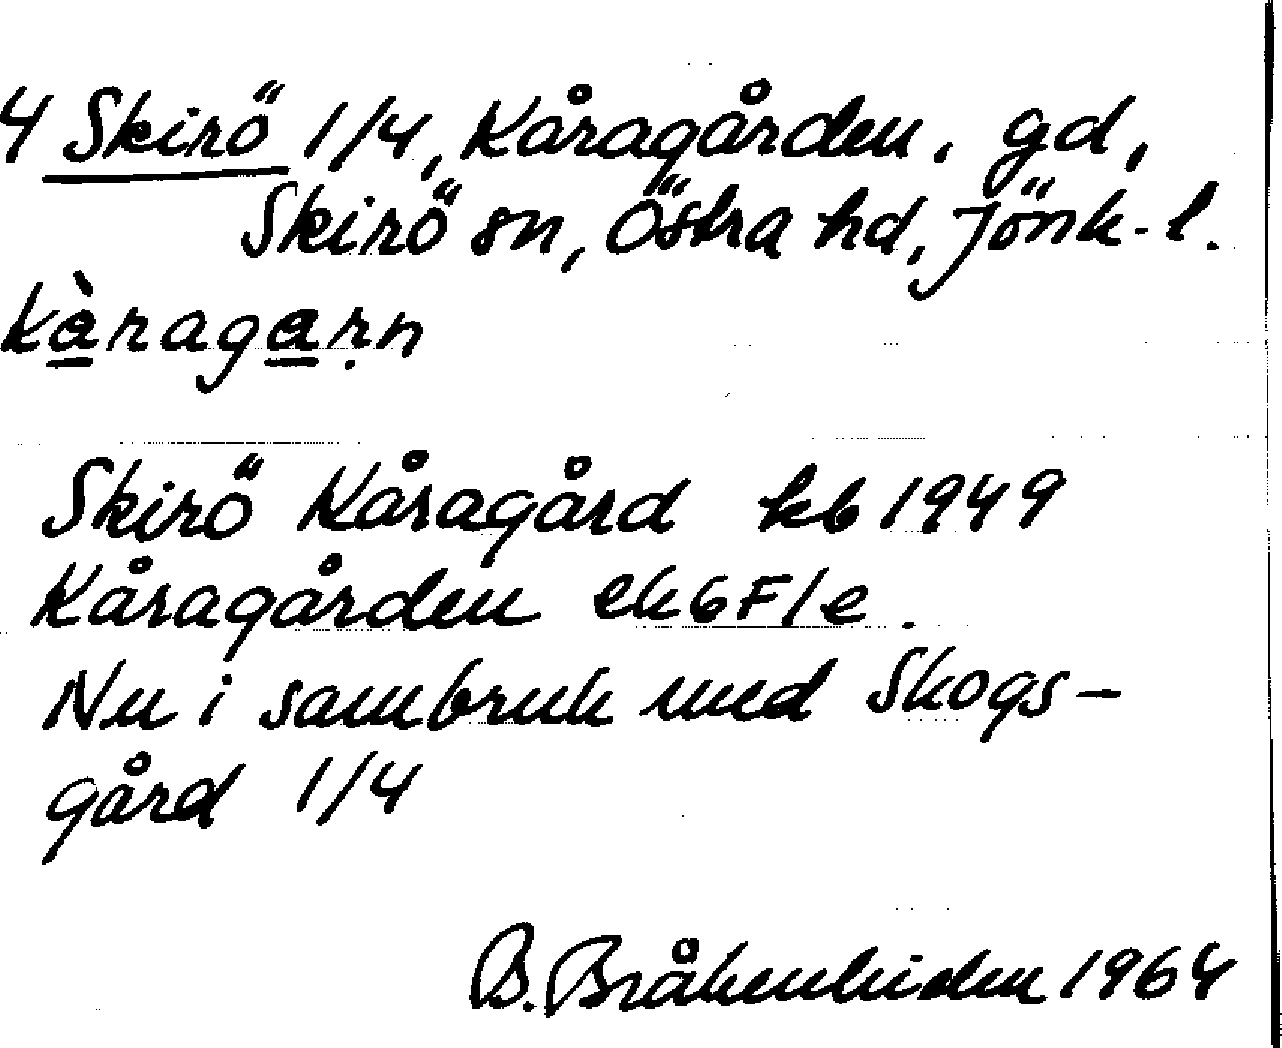 4 Skirö 1/4, Kåragården, gd,
Skirö sn, Östra hd, Jönk-l.
kàragaṛn
Skirö Kåragård kb 1949
Kåragården ek6F1e.
Nu i sambruk med Skogs-
gård 1/4
B. Bråkenhielm 1964